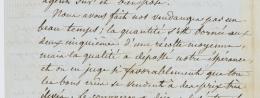 Nous avons fait nos vendanges par un
beau temps; la quantité s'est bornée aux
deux cinquièmes d'une récolte moyenne,
mais la qualité a dépassé notre espérance
et on en juge si favorablement que tous
les bons crûs se vendent à des prix très